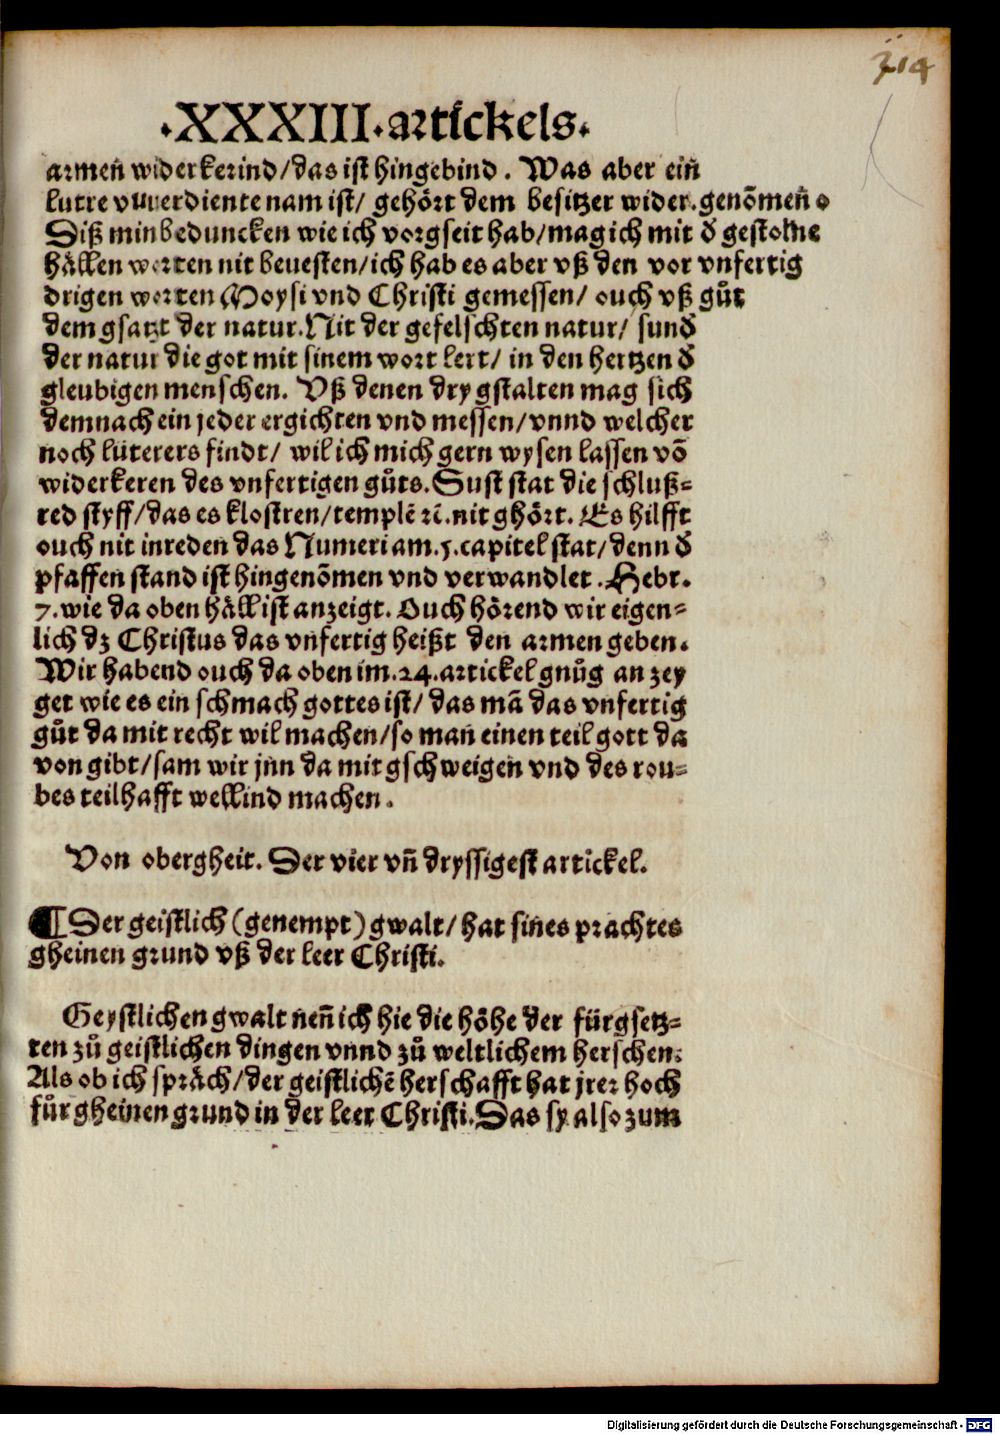 214
.XXXIII.artickels.
armen̄ widerkerind/das ist hingebind. Was aber ein̄
lutre vnuerdiente nam ist/ gehört dem besitzer wider.genōmen̄
Diß min beduncken wie ich vorgseit hab/mag ich mit d
hällen worten nit beuesten/ich hab es aber vß den vor vnfertig
drigen worten Moysi vnd Christi gemessen/ ouch vß gůt
dem gsatzt der natur.Nit der gefelschten natur/ sund
der natur die got mit sinem wort lert/ in den hertzen d
gleubigen menschen. Vß denen dry gstalten mag sich
demnach ein jeder ergichten vnd messen/vnnd welcher
noch luterers findt/ wil ich mich gern wysen lassen vō
widerkeren des vnfertigen gůts.Sust stat die schluß=
red styff/das es klostren/templē ꝛc̄.nit ghört. Es hilfft
ouch nit inreden das Numeri am.5.capitel stat/denn d
pfaffen stand ist hingenōmen vnd verwandlet.Hebr.
7.wie da oben häll ist anzeigt. Ouch hörend wir eigen=
lich dz Christus das vnfertig heißt den armen geben.
Wir habend ouch da oben im.24.artickel gnůg an zey
get wie es ein schmach gottes ist/ das mā das vnfertig
gůt da mit recht wil machen/so man einen teil gott da
von gibt/sam wir jnn da mit gschweigen vnd des rou=
bes teilhafft wellind machen.
Von obergheit. Der vier vn̄ dryssigest artickel.
¶ Der geistlich (genempt) gwalt/ hat sines prachtes
gheinen grund vß der leer Christi.
Geystlichen gwalt nen̄ ich hie die höhe der fürgsetz=
ten zů geistlichen dingen vnnd zů weltlichem herschen.
Als ob ich spräch/der geistlichē herschafft hat jrer hoch
fůr gheinen grund in der leer Christi.Das sy also zum
Digitalisierung gefördert durch die Deutsche Forschungsgemeinschaft - DFG